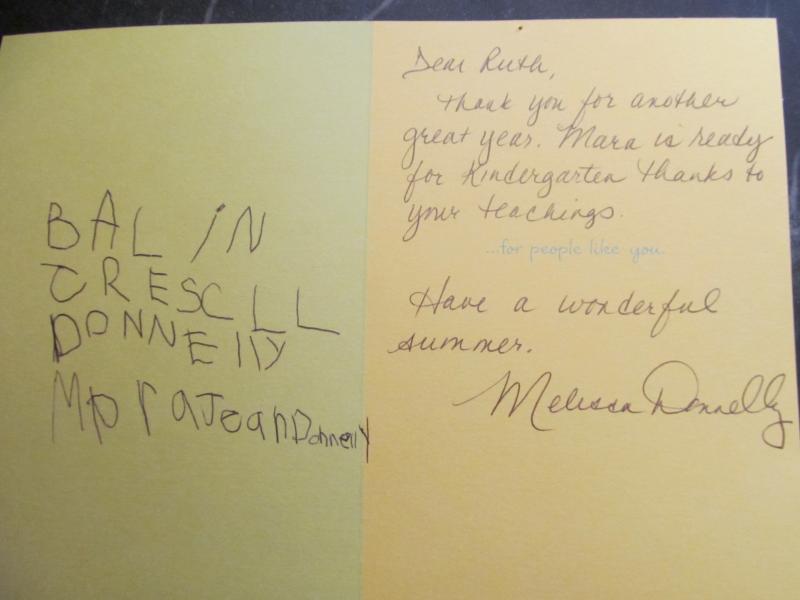 BALIN
CRESCLL
DONNElly
MaraJeanDonnelly
Dear Ruth,
Thank you for another
great year. Mara is ready
for Kindergarten thanks to
your teachings.
...for people like you.
Have a wonderful
summer.
Melissa Donnelly